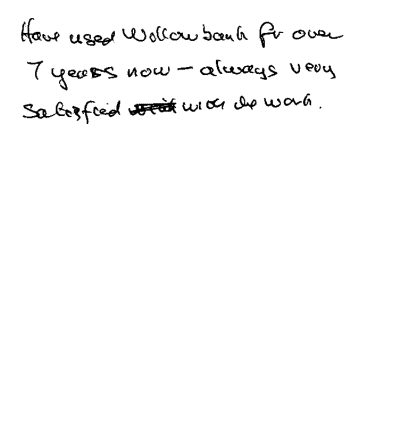 Have used Willowbank for over
7 years now - always very
satisfied with the work.